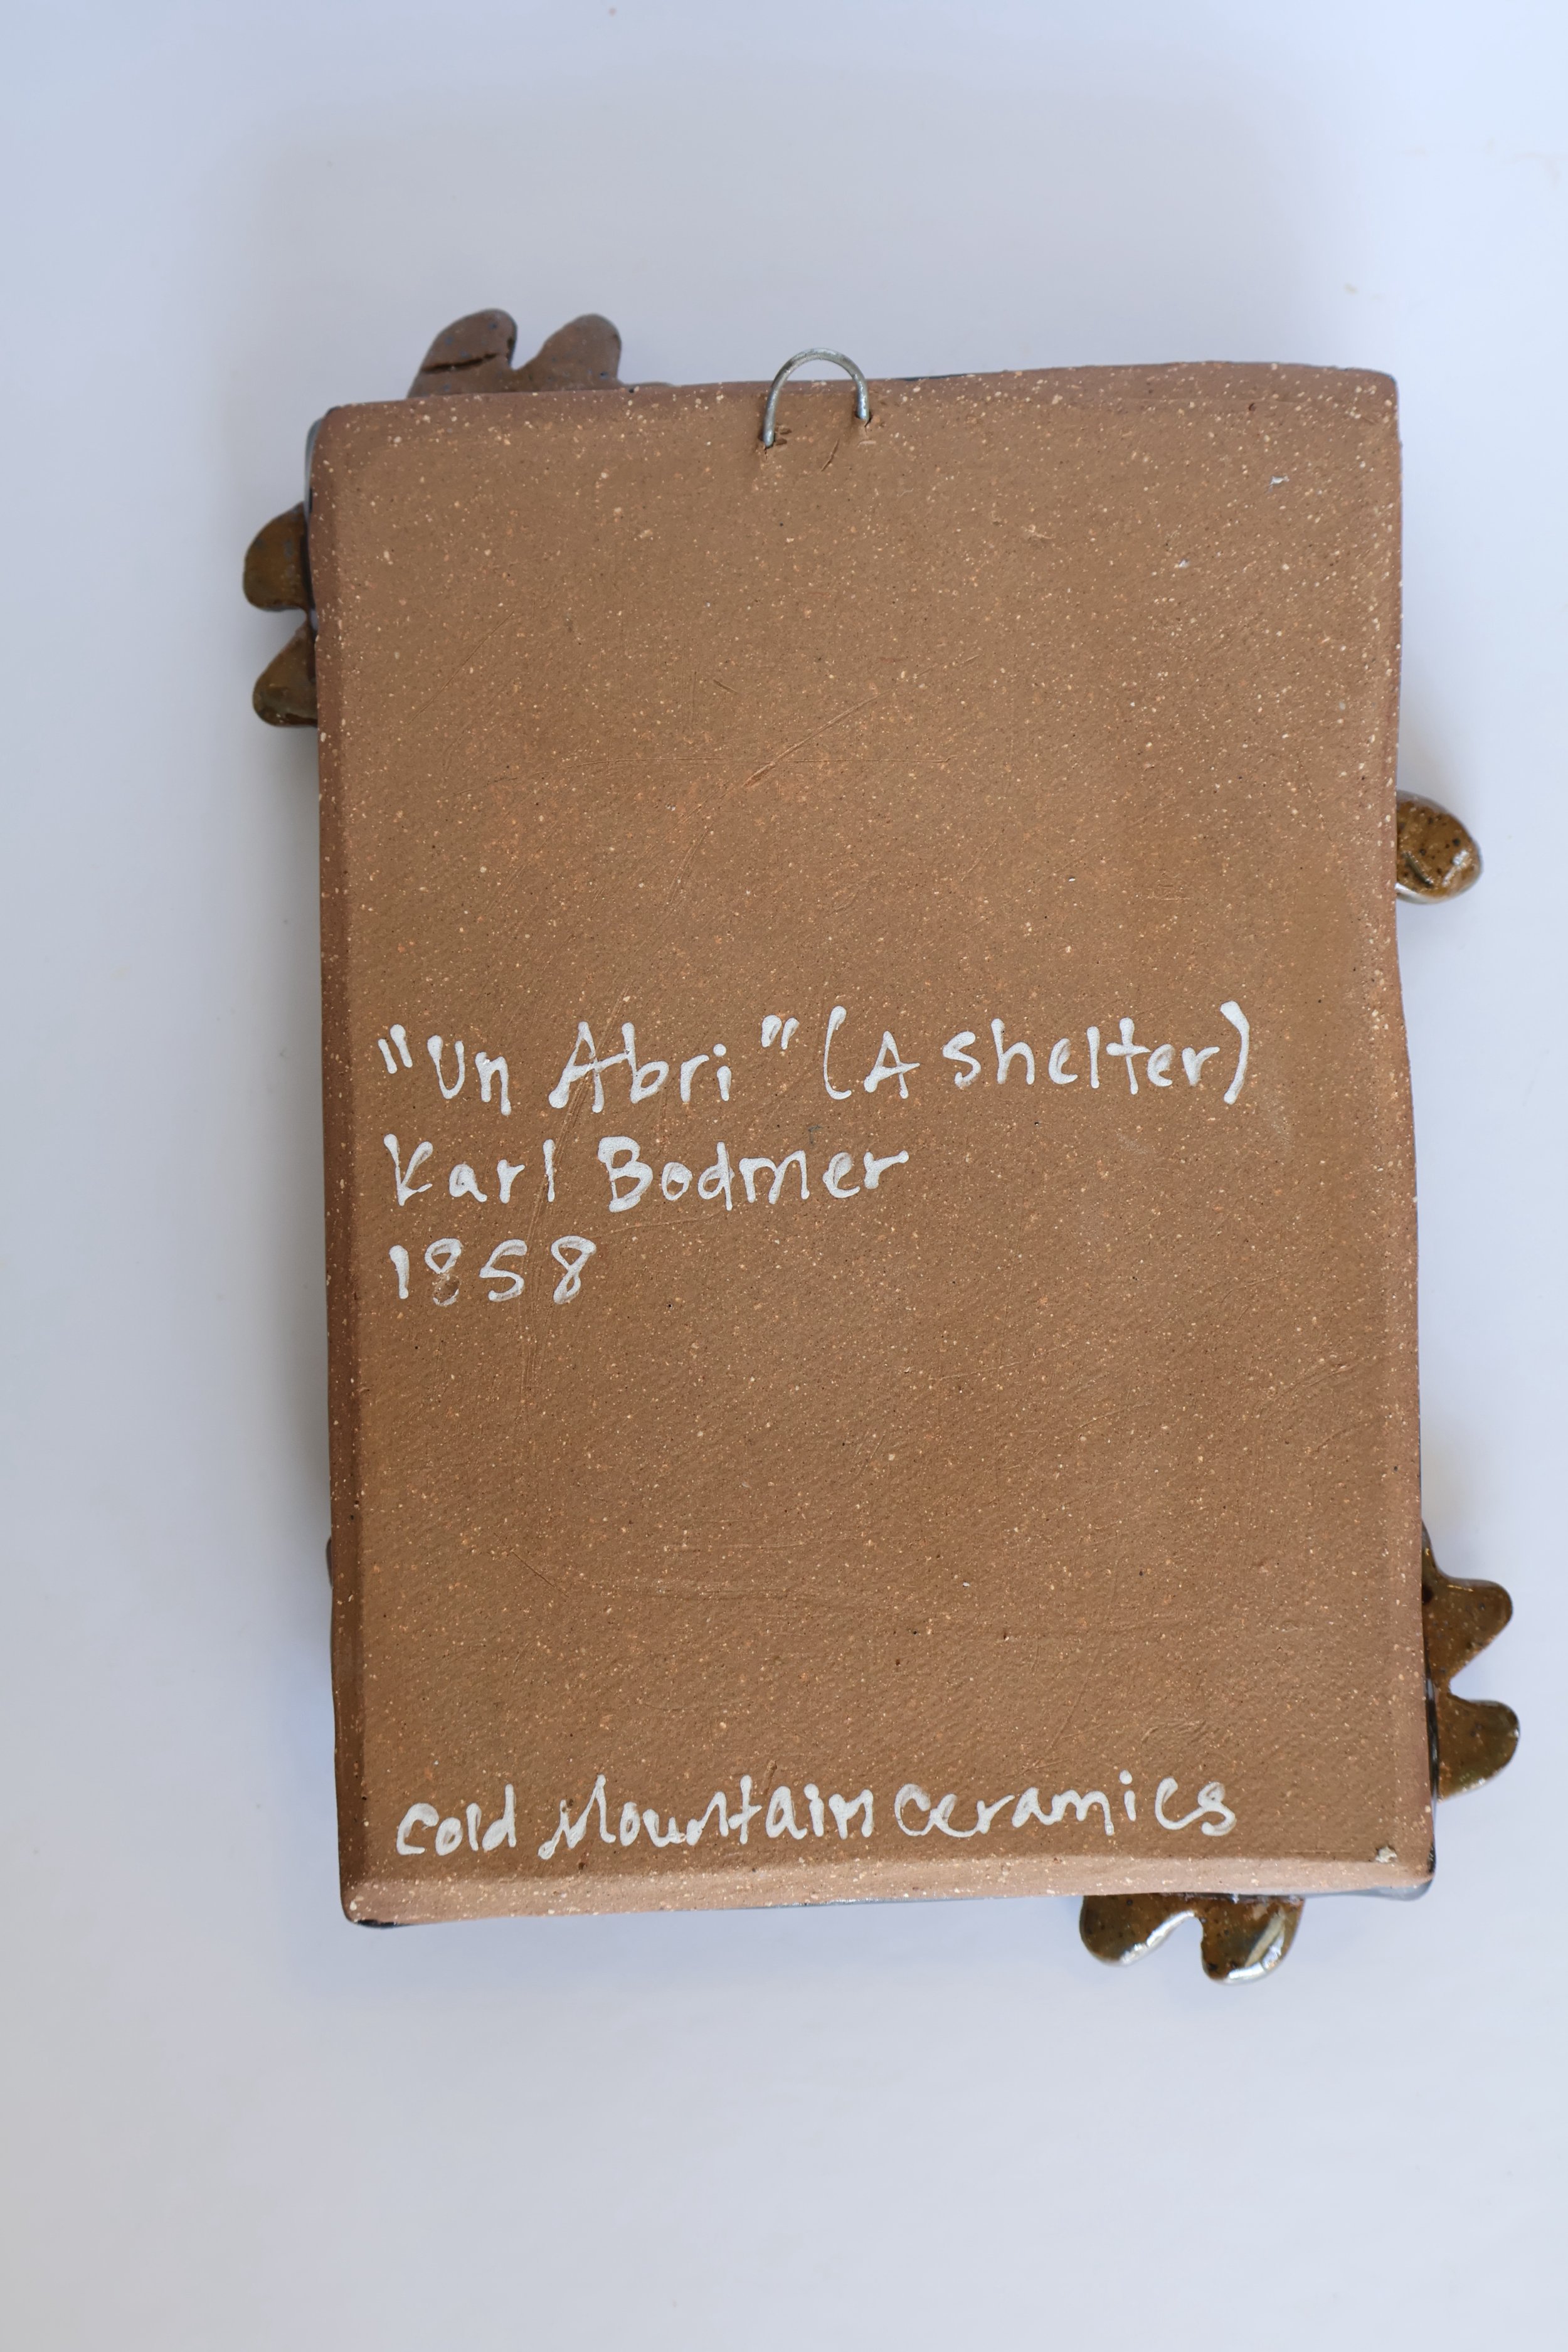 "Un Abri" (A shelter)
Karl Bodmer
1858
Cold Mountain Ceramics